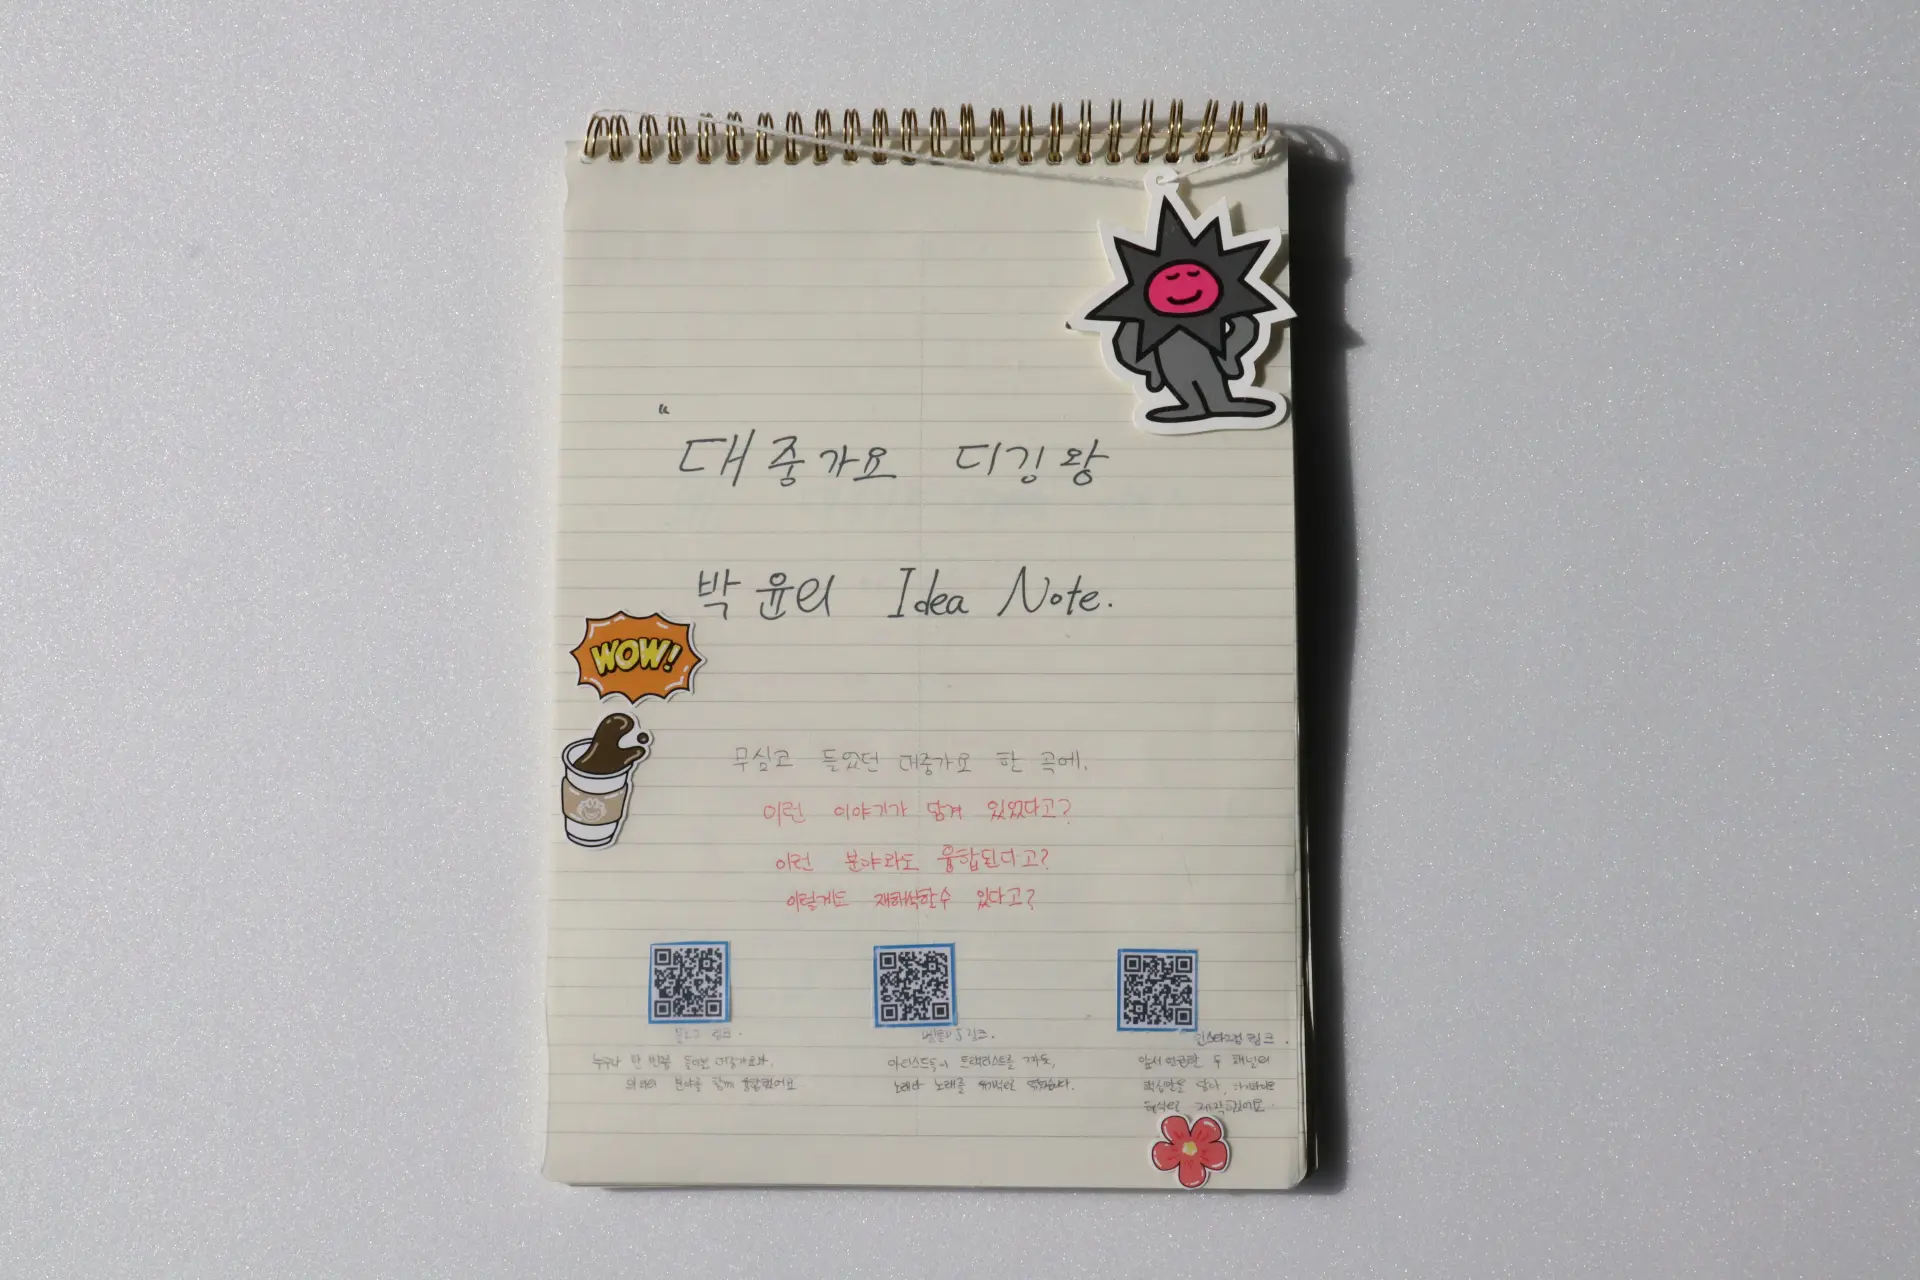 “
대중가요 디깅왕
박윤의 Idea Note.
WOW!
무심코 들었던 대중가요 한 곡에.
이런 이야기가 담겨 있었다고?
이런 분야와도 융합된다고?
이렇게도 재해석할수 있다고?
블로그 링크.
링크.
인스타그램 링크.
누구나 한 번쯤 들어본 대중가요와,
의외의 분야를 함께 융합했어요
아티스트와 트랙리스트를
노래를
앞서 언급한 두 채널의
핵심만을 담아,
형식으로 제작되었어요.